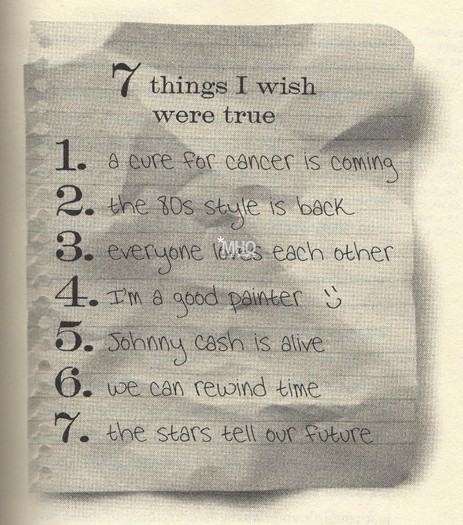 7 things I wish
were true
1. a cure for cancer is coming
2. the 80s style is back
3. everyone loves each other
*MHQ
4. I'm a good painter :)
5. Johnny cash is alive
6. we can rewind time
7. the stars tell our future